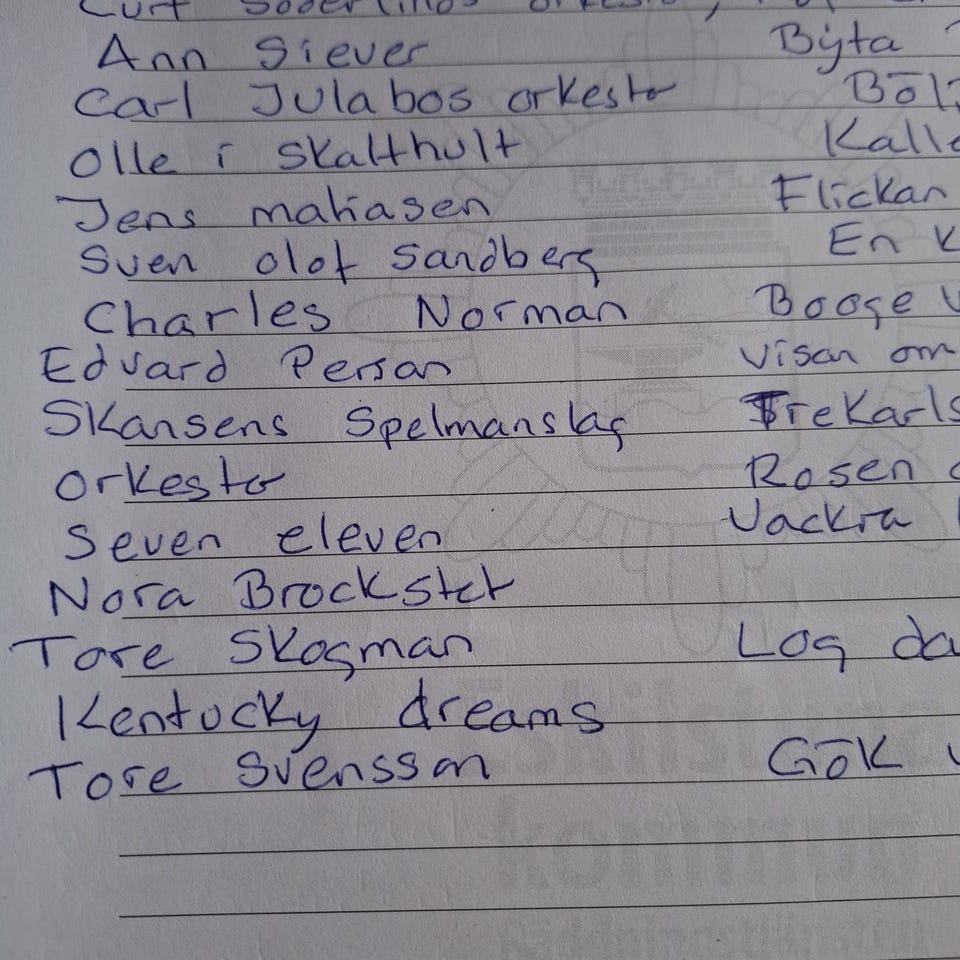 Curt Söderlinds orkester,
Ann Siever Byta
Carl Julabos orkester Böl
Olle i Skalthult Kalle
Jens matiasen Flickan
Sven olof Sandberg En K
Charles Norman Booge
Edvard Persson Visan om
Skansens Spelmanslag Trekarls
orkester Rosen
Seven eleven Vackra
Nora Brockstet
Tore Skogman Log da
Kentucky dreams
Tore Svensson Gök